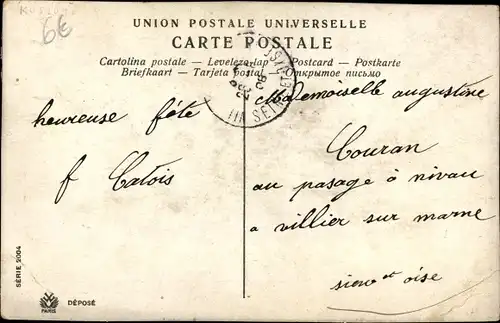 6€
UNION POSTALE UNIVERSELLE
CARTE POSTALE
Cartolina postale — Levelező-lap — Postcard — Postkarte
Briefkaart — Tarjeta postal — Открытое письмо
heureuse fête
f Catois
Mademoiselle augustine
Couran
au pasage à nivau
a villier sur marne
siene et oise
SÉRIE 2004
PARIS
DÉPOSÉ